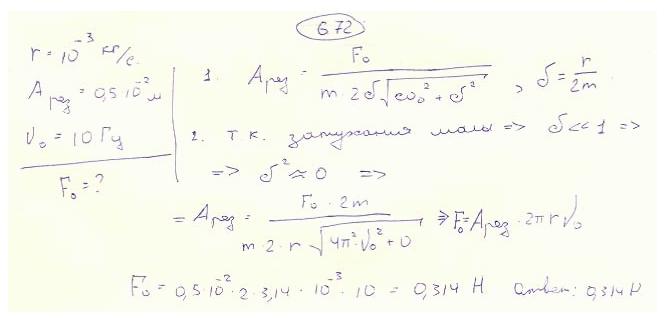 6.72
r = 10⁻³ кг/с.
A рез = 0,5·10⁻² м
ν₀ = 10 Гц
F₀ = ?
1. A рез = F₀ / (m · 2δ √(ω₀² + δ²)) , δ = r / 2m
2. т.к. затухания малы => δ << 1 =>
=> δ² ≈ 0 =>
= A рез = F₀ · 2m / (m · 2 · r √(4π² · ν₀² + 0)) => F₀ = A рез · 2π r ν₀
F₀ = 0,5·10⁻² · 2 · 3,14 · 10⁻³ · 10 = 0,314 Н ответ: 0,314 Н